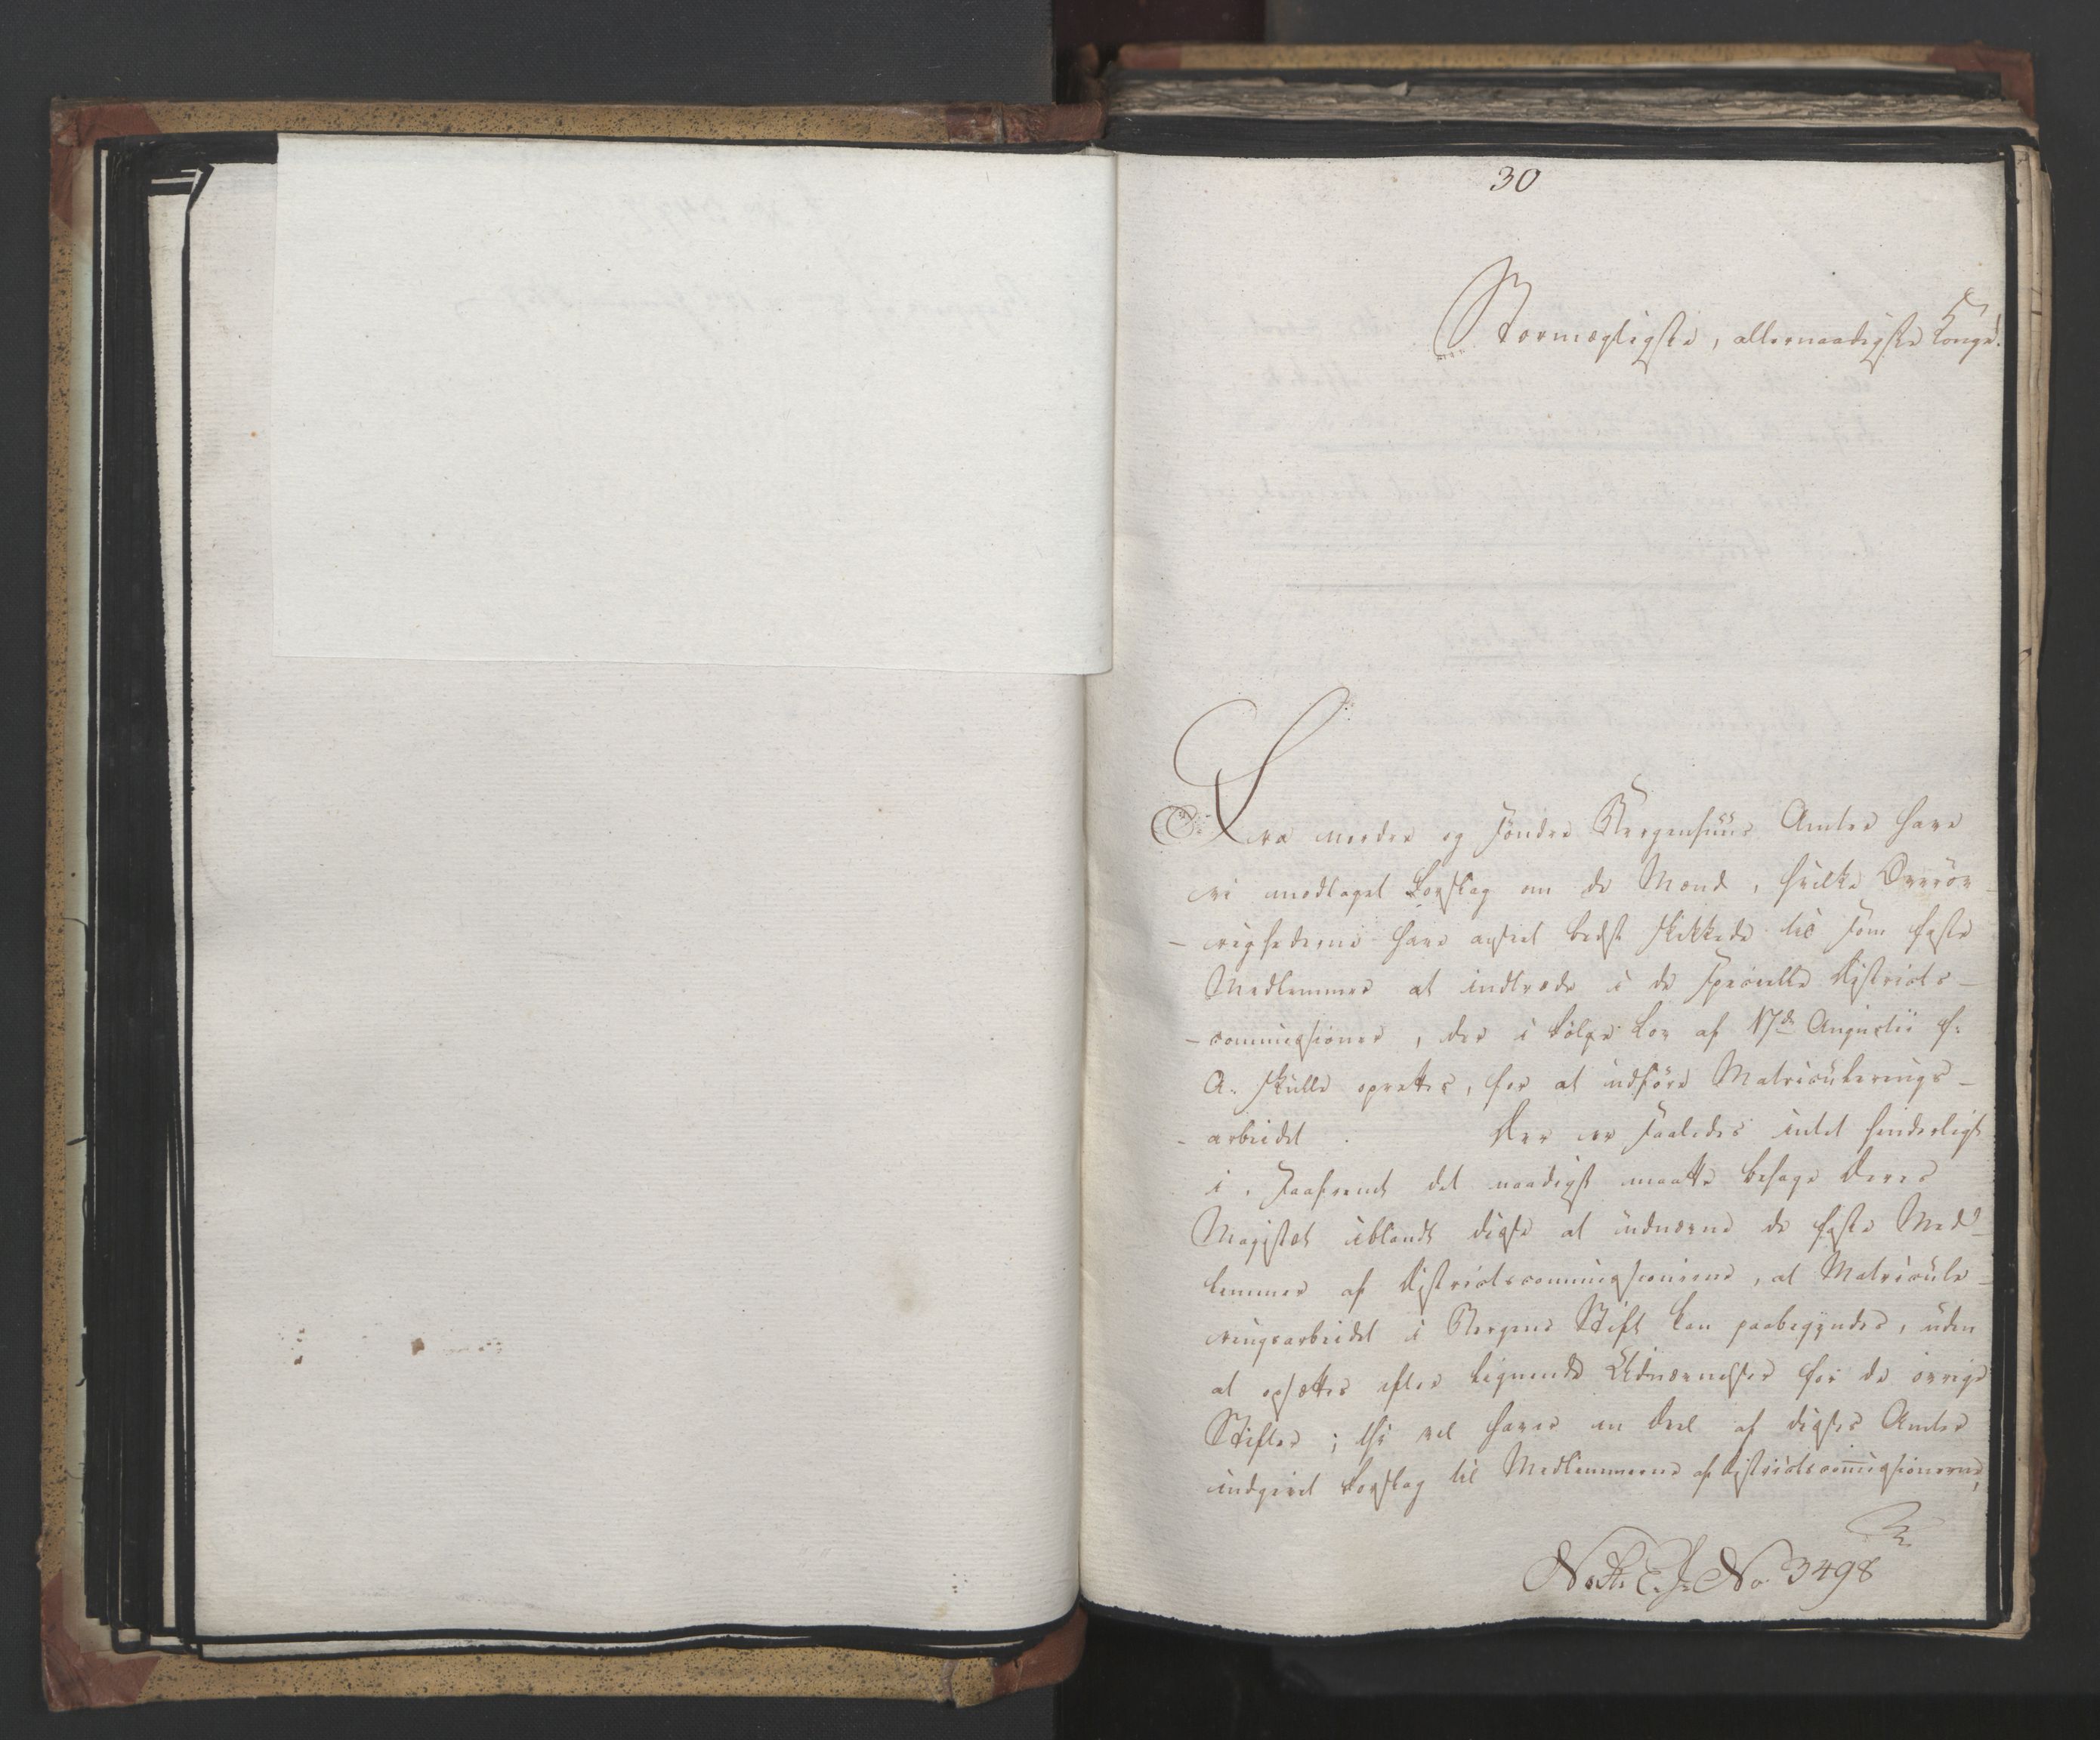 30
Stormægtigste, allernaadigste Konge!
Fra nordre og søndre Bergenhuus Amter have
vi modtaget Forslag om de Mænd, hvilke Øverøv-
- righederne have anseet bedst skikkede til som faste
Medlemmer at indtræde i de specielle Districts-
- commissioner, der i Følge Lov af 17de Augustii f:
A: skulle oprettes, for at udføre Matriculerings-
- arbeidet. Der er saaledes intet hinderligt
i, saafremt det naadigst maatte behage Deres
Majestæt iblandt disse at udnævne de faste Med-
lemmer af Districtscommissionerne, at Matricule-
ringsarbeidet i Bergens Stift kan paabegyndes, uden
at opsættes efter lignende Udnævnelser for de øvrige
Stifter; thi vel have en Deel af disses Amter
indgivet Forslag til Medlemmerne af Districtscom̅issionerne,
No. 3498